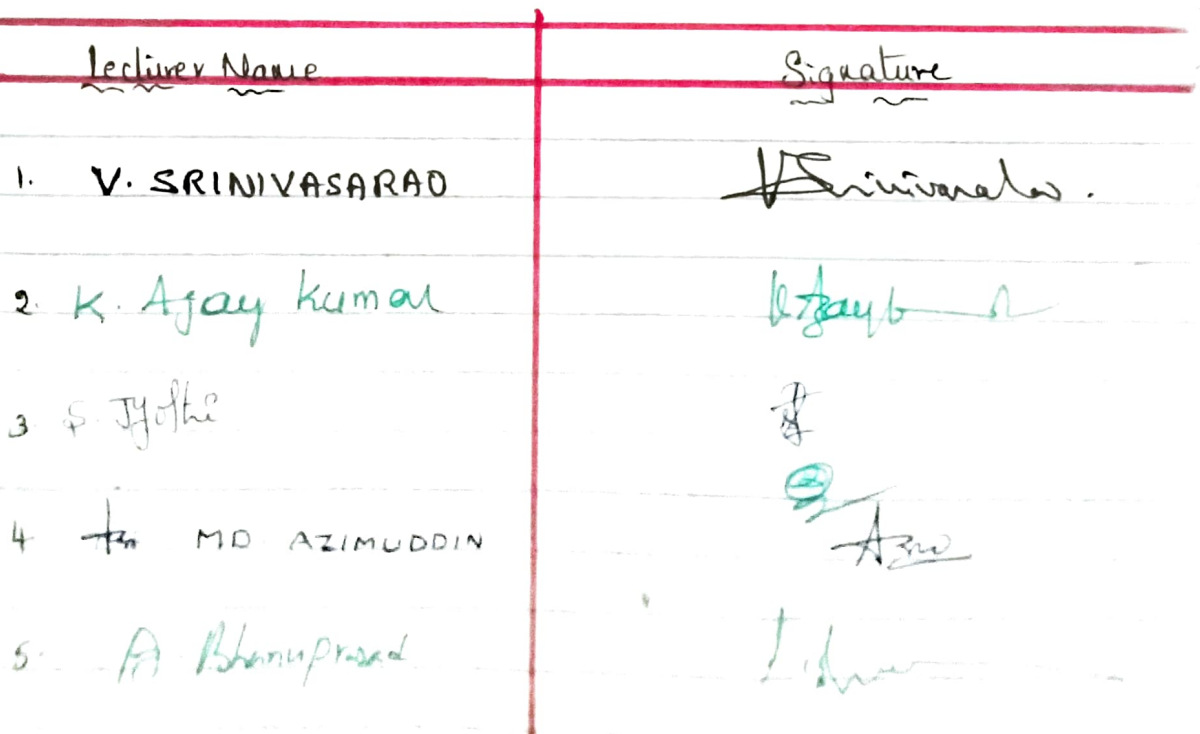 Lecturer Name Signature
1. V. SRINIVASARAO VSrinivasarao.
2. K. Ajay Kumar K Ajay
3 S. Jyothi
4 MD AZIMUDDIN
5. A Bhanuprasad